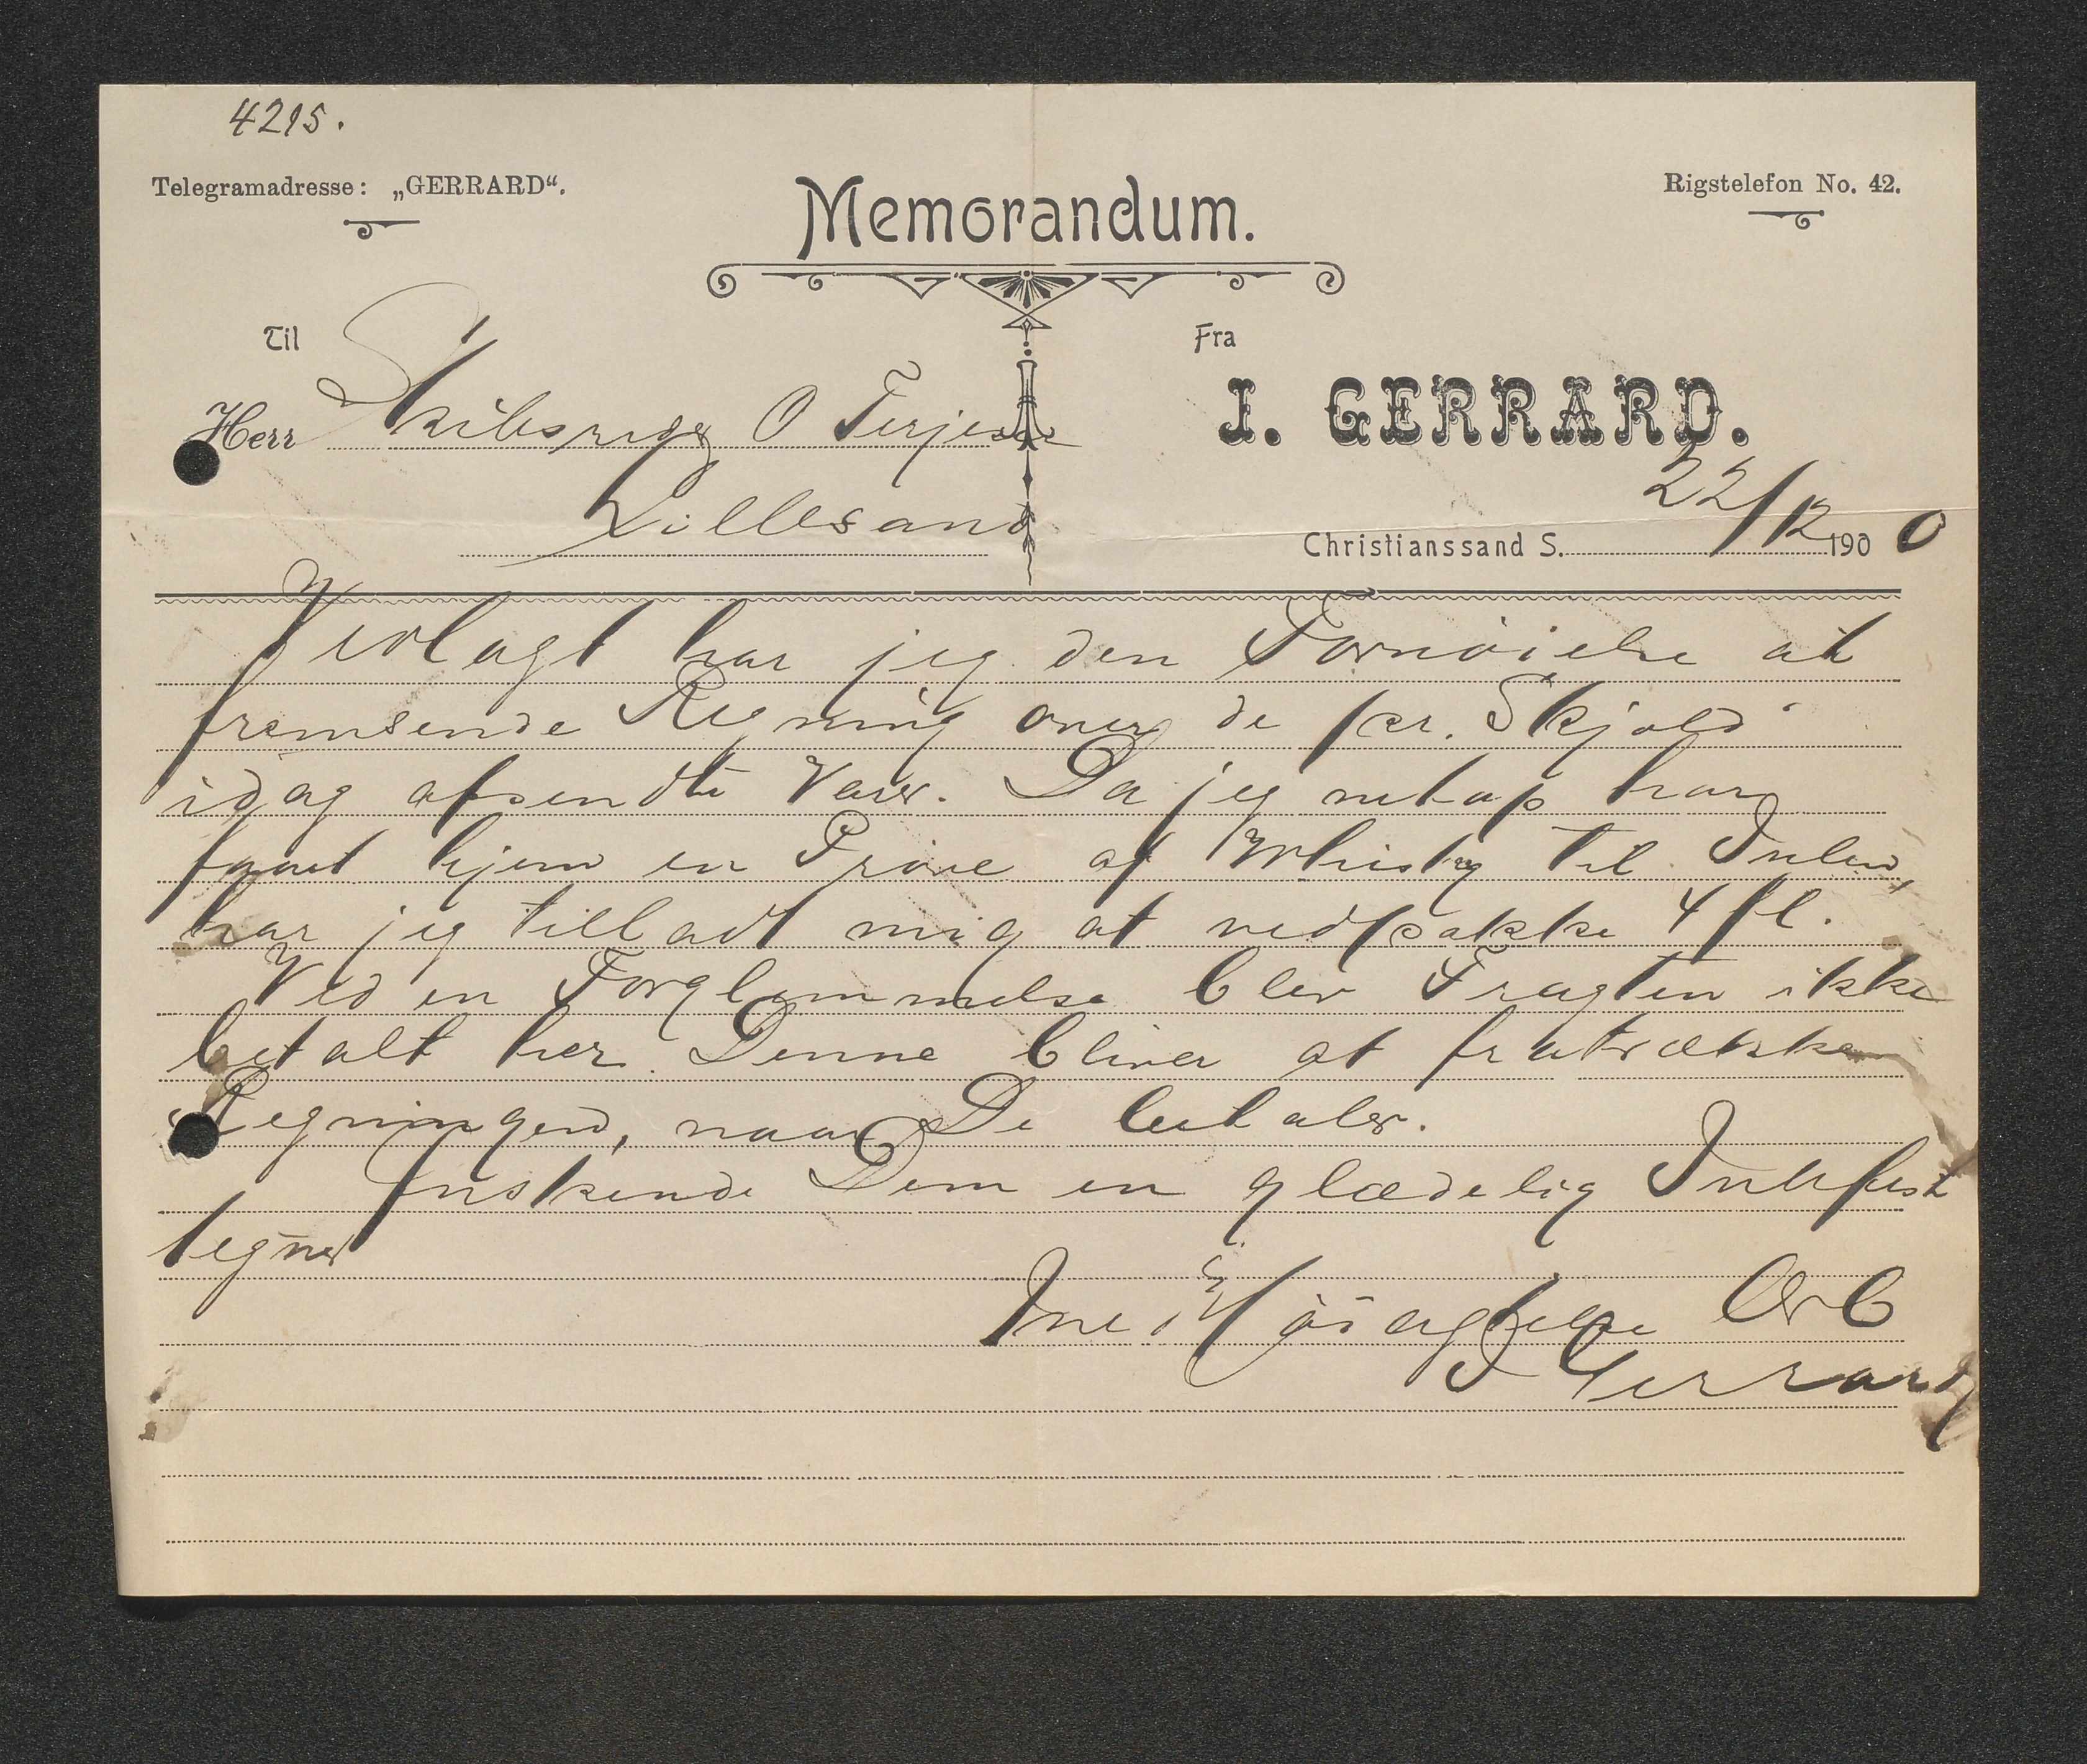 4215.
Telegramadresse: „GERRARD“.
Rigstelefon No. 42.
Memorandum.
Til
Fra
Herr Skibsreder O Terjesen
J. GERRARD.
Lillesand
Christianssand S. 22/12 1900
Vedlagt har jeg den Fornöielse at
fremsende Regning over de pr. Skjold"
idag afsendte Varer. Da jeg netop har
faaet hjem en Pröve af Whisky til Julen,
har jeg tilladt mig at nedpakke 4 fl.
Ved en Forglemmelse blev Fragten ikke
betalt her. Denne bliver at fratrække
Regningen, naar De betaler.
Önskende Dem en glædelig Julefest
tegner
Med Höiagtelse Erb
J Gerrard